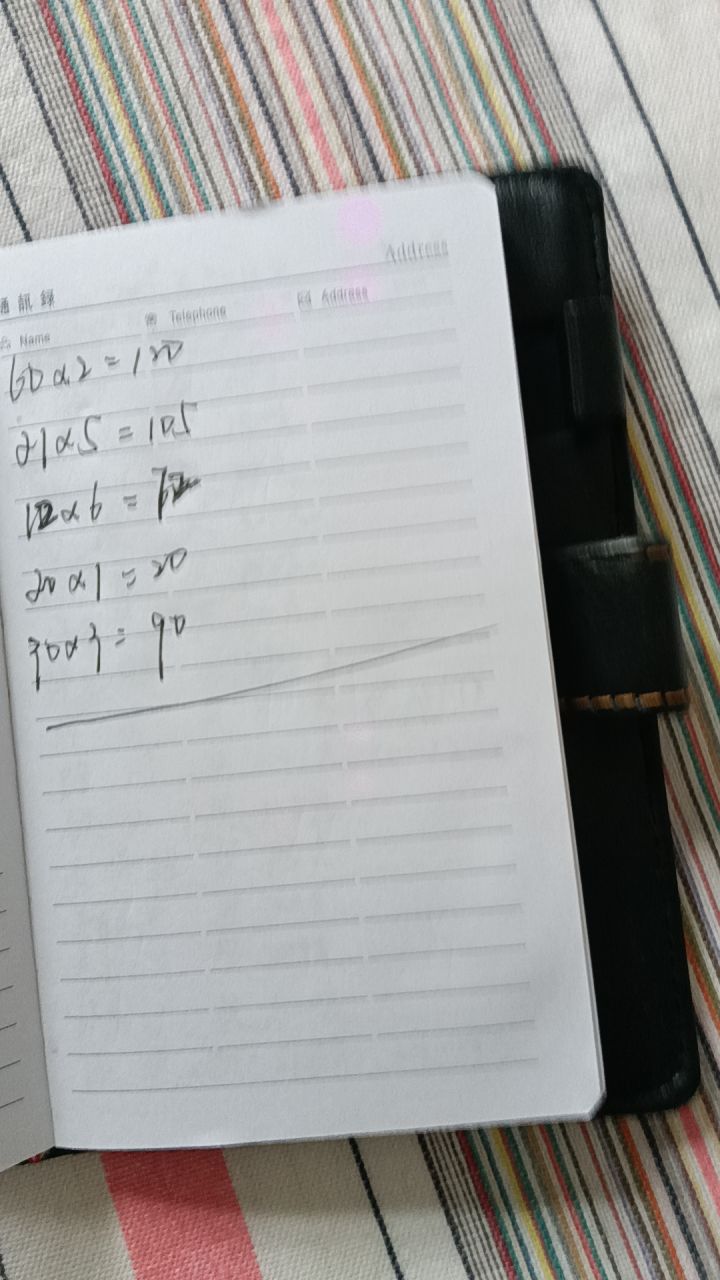 Address
通訊録
Name Telephone Address
60×2=120
21×5=105
12×6=72
20×1=20
30×3=90